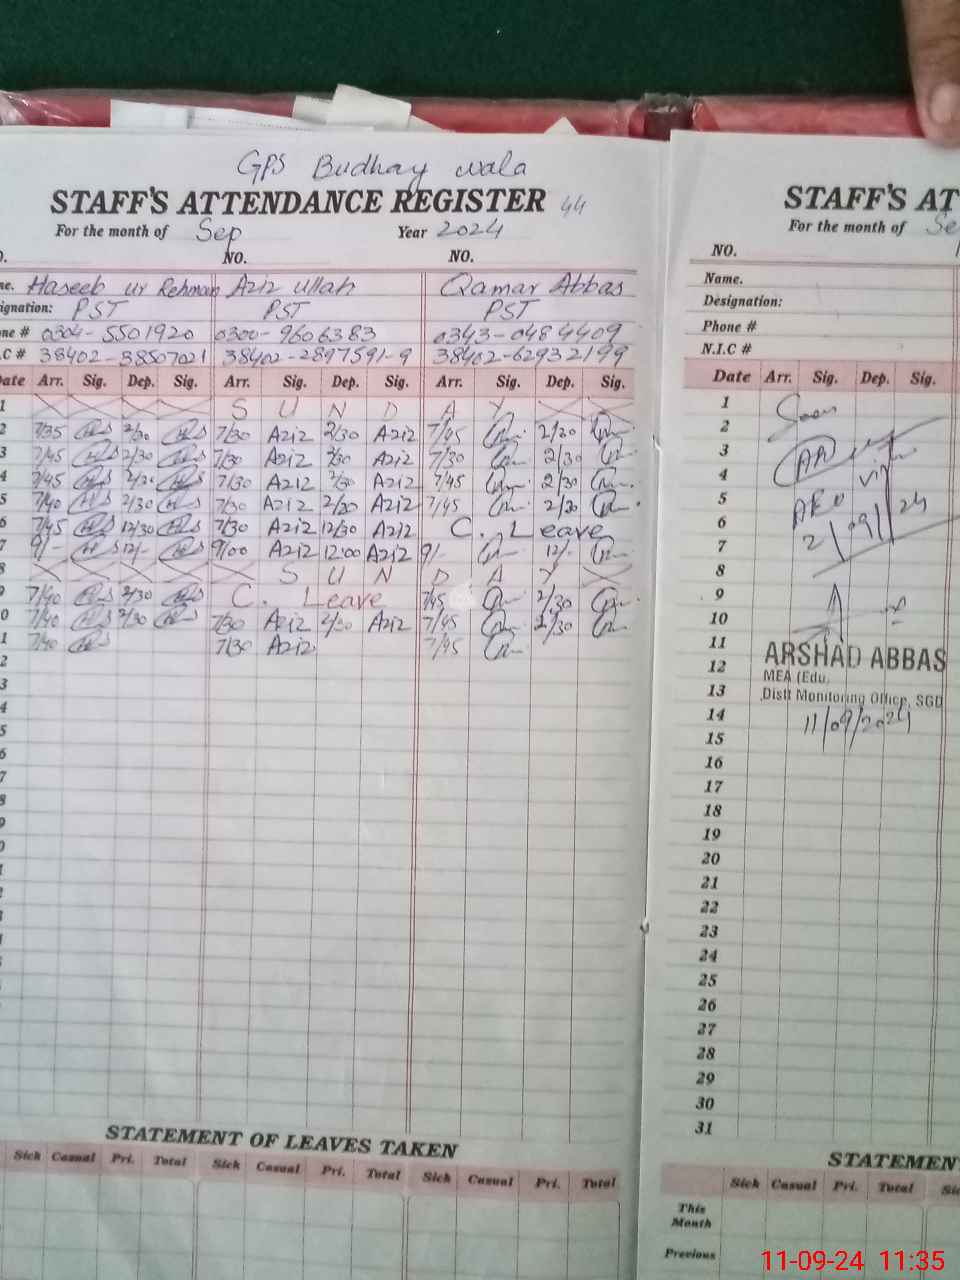 GPS Budhay wala
STAFF'S ATTENDANCE REGISTER 44
For the month of Sep Year 2024
NO. NO.
Haseeb ur Rehman Aziz ullah Qamar Abbas
ignation: PST PST PST
ne # 0304-5501920 0300-9606383 0343-0484409
.C # 38402-38507021 38402-2897591-9 38402-62932199
Date Arr. Sig. Dep. Sig. Arr. Sig. Dep. Sig. Arr. Sig. Dep. Sig.
1 S U N D A Y
2 7/35 2/30 7/30 Aziz 2/30 Aziz 7/45 2/20
3 7/45 2/30 7/30 Aziz 2/30 Aziz 7/30 2/30
4 7/45 7/30 Aziz Aziz 7/45 2/30
5 7/40 2/30 7/30 Aziz 2/30 Aziz 7/45 2/20
6 7/45 12/30 7/30 Aziz 12/30 Aziz C. Leave
7 9/- 12/- 9/00 Aziz 12:00 Aziz 9/- 12/-
8 S U N D A Y
9 7/40 2/30 C. Leave 7/45 2/30
0 7/40 2/30 7/30 Aziz 2/30 Aziz 7/45 2/30
1 7/40 7/30 Aziz 7/45
2
3
4
5
6
7
8
9
0
1
2
3
4
STATEMENT OF LEAVES TAKEN
Sick Casual Pri. Total Sick Casual Pri. Total Sick Casual Pri. Total
STAFF'S AT
For the month of Se
NO.
Name.
Designation:
Phone #
N.I.C #
Date Arr. Sig. Dep. Sig.
1
2
3
4
5 AEO
6
7 2/09/24
8
9
10
11
ARSHAD ABBAS
12
MEA (Edu.
13
Distt Monitoring Office, SGD
14 11/09/2024
15
16
17
18
19
20
21
22
23
24
25
26
27
28
29
30
31
STATEMEN
Sick Casual Pri. Total
This Month
Previous
11-09-24 11:35